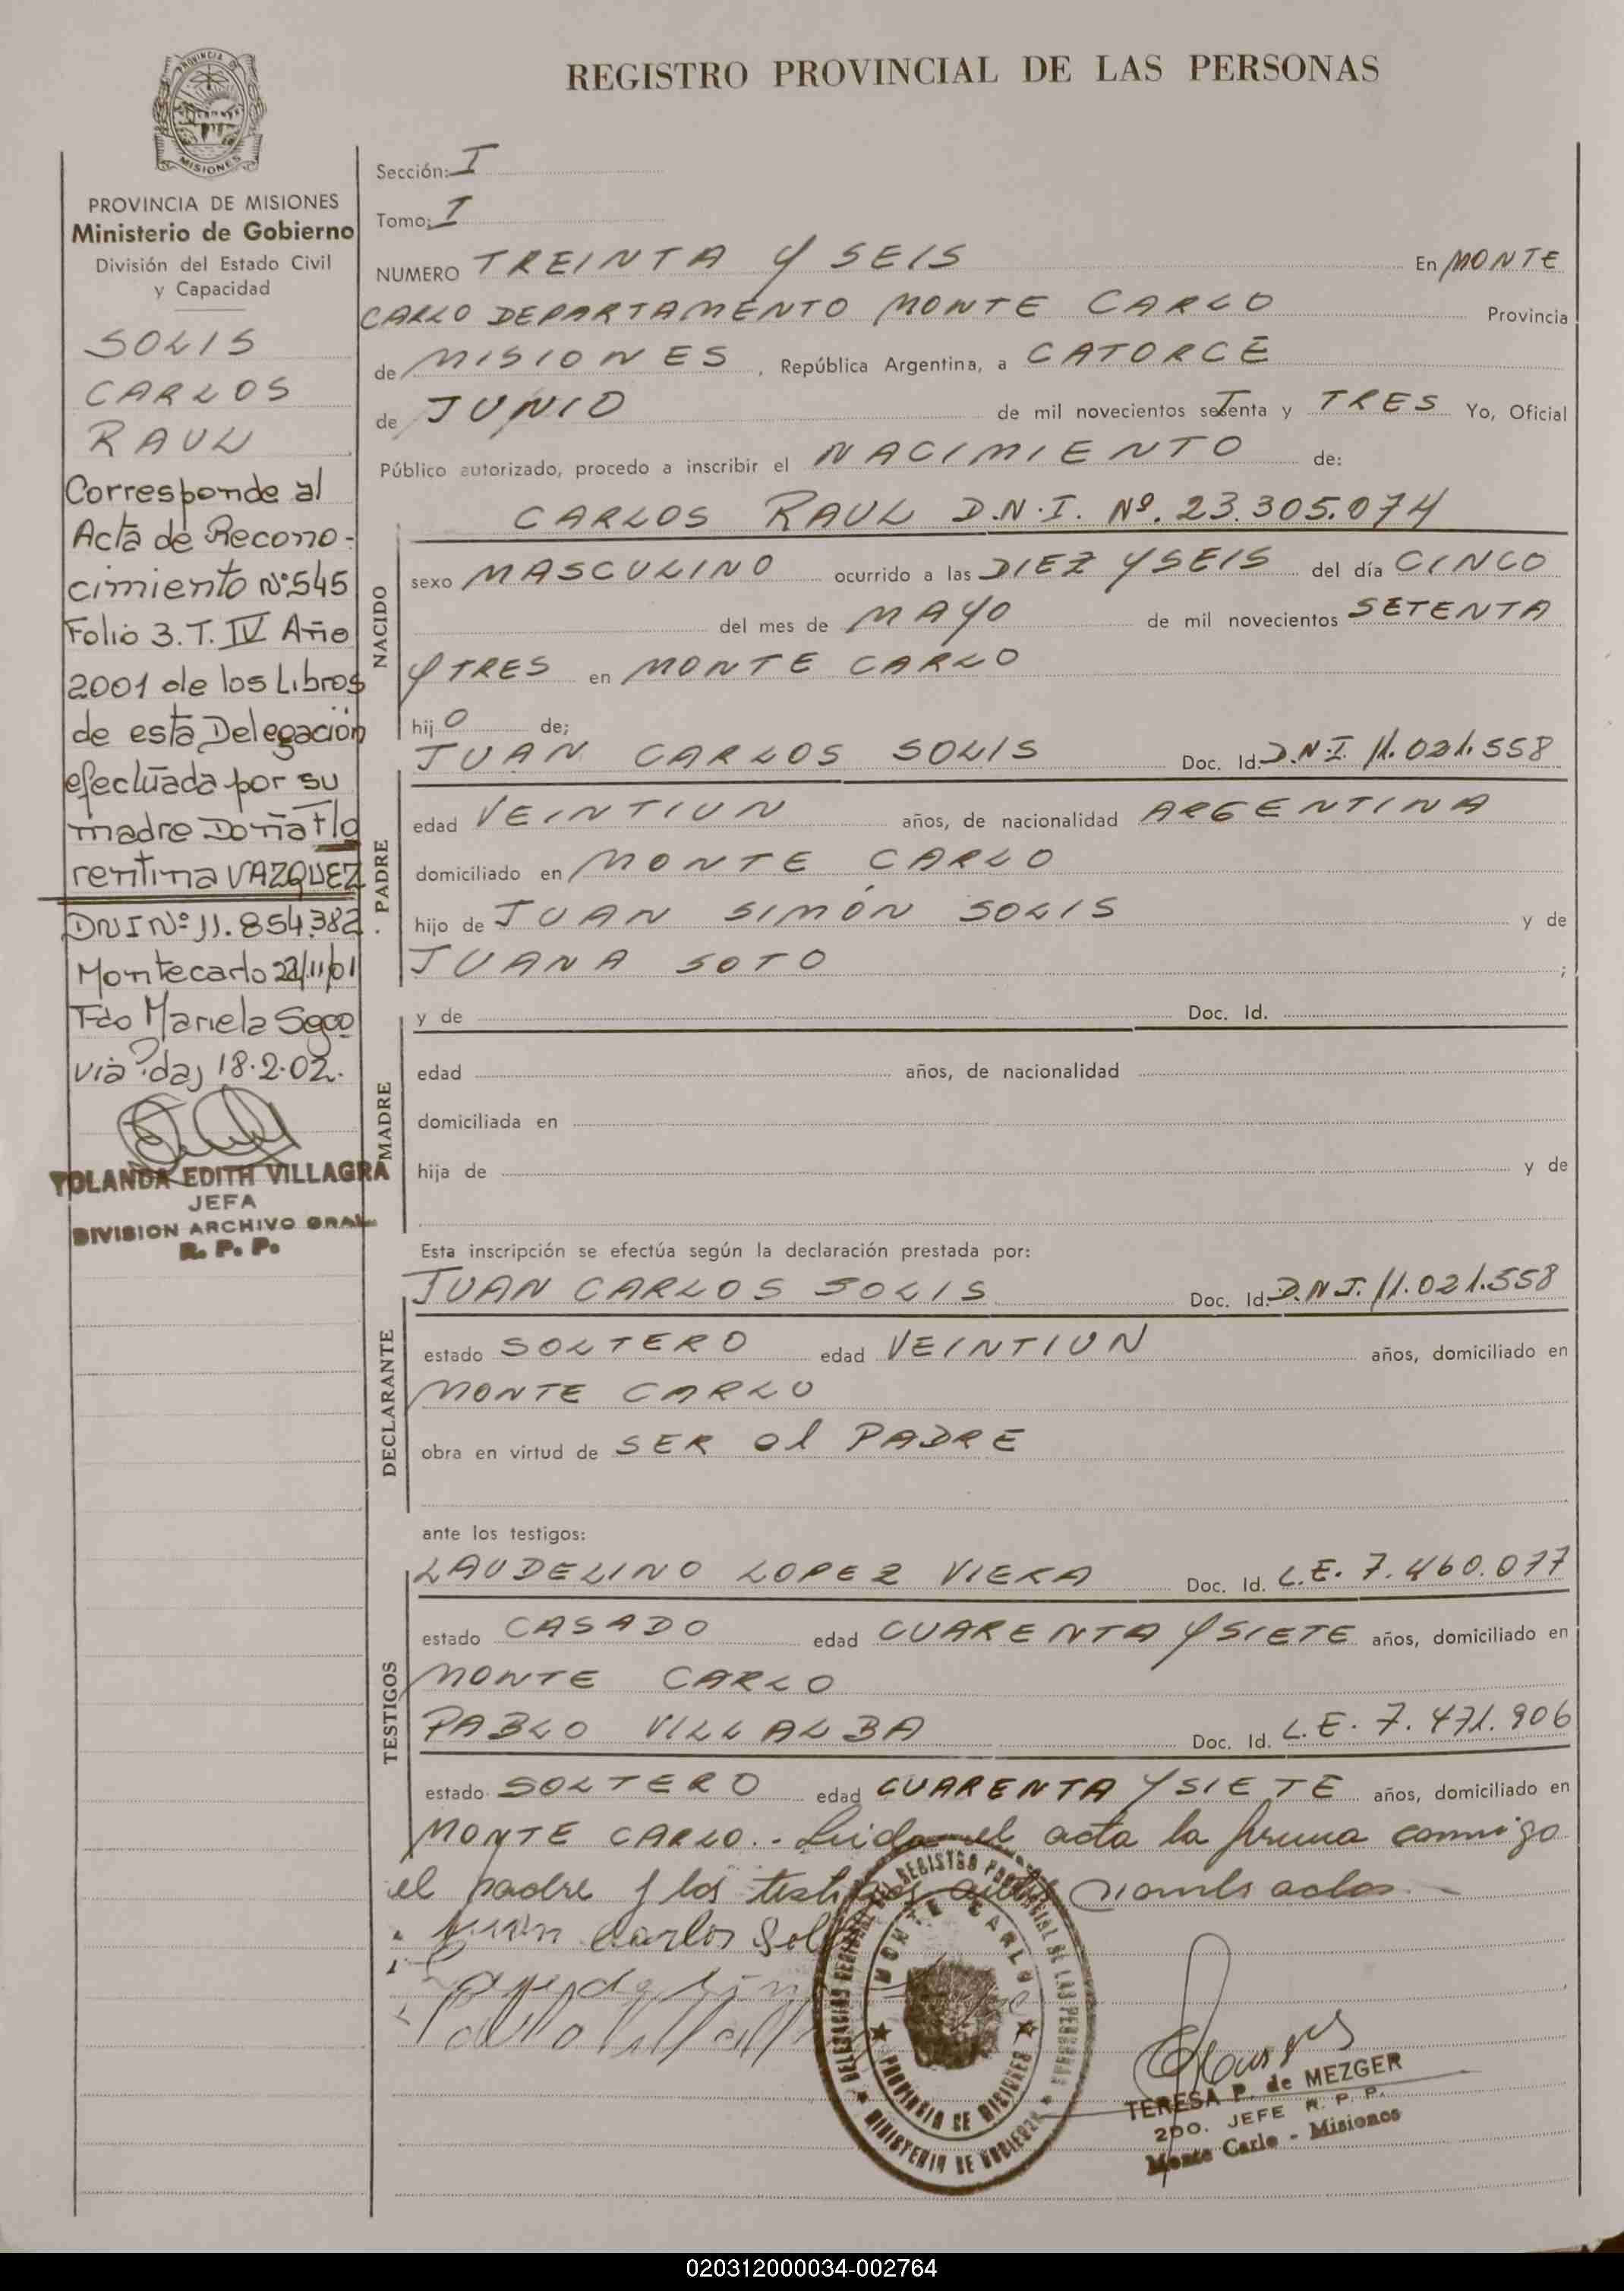 REGISTRO PROVINCIAL DE LAS PERSONAS
PROVINCIA DE
MISIONES
PROVINCIA DE MISIONES
Ministerio de Gobierno
División del Estado Civil
y Capacidad
SOLIS
CARLOS
RAUL
Corresponde al
Acta de Recono-
cimiento Nº545
Folio 3. T. IV Año
2001 de los Libros
de esta Delegación
efectuada por su
madre Doña Flo
rentina VAZQUEZ
DNI Nº 11.854.382.
Montecarlo 22/11/01
Fdo Mariela Sego
via Pdas 18.2.02.
YOLANDA EDITH VILLAGRA
JEFA
DIVISION ARCHIVO GRAL.
R. P. P.
Sección: I
Tomo: I
NUMERO TREINTA Y SEIS En MONTE
CARLO DEPARTAMENTO MONTE CARLO Provincia
de MISIONES, República Argentina, a CATORCE
de JUNIO de mil novecientos setenta y TRES Yo, Oficial
Público autorizado, procedo a inscribir el NACIMIENTO de:
CARLOS RAUL D.N.I. Nº. 23.305.074
NACIDO
sexo MASCULINO ocurrido a las DIEZ Y SEIS del día CINCO
del mes de MAYO de mil novecientos SETENTA
Y TRES en MONTE CARLO
hijO de;
JUAN CARLOS SOLIS Doc. Id. D.N.I. 11.021.558
PADRE
edad VEINTIUN años, de nacionalidad ARGENTINA
domiciliado en MONTE CARLO
hijo de JUAN SIMÓN SOLIS y de
JUANA SOTO ;
MADRE
y de Doc. Id.
edad años, de nacionalidad
domiciliada en
hija de y de
Esta inscripción se efectúa según la declaración prestada por:
JUAN CARLOS SOLIS Doc. Id. D.N.I. 11.021.558
DECLARANTE
estado SOLTERO edad VEINTIUN años, domiciliado en
MONTE CARLO
obra en virtud de SER el PADRE
ante los testigos:
LAUDELINO LOPEZ VIERA Doc. Id. L.E. 7.460.077
TESTIGOS
estado CASADO edad CUARENTA Y SIETE años, domiciliado en
MONTE CARLO
PABLO VILLALBA Doc. Id. L.E. 7.471.906
estado SOLTERO edad CUARENTA Y SIETE años, domiciliado en
MONTE CARLO.- Leida el acta la firma conmigo
el padre y los testigos antes nombrados.-
Juan Carlos Solis
DELEGACION REGIONAL DEL REGISTRO PROVINCIAL DE LAS PERSONAS
MONTE CARLO
PROVINCIA DE MISIONES
MINISTERIO DE GOBIERNO
TERESA P. de MEZGER
2DO. JEFE R. P. P.
Monte Carlo - Misiones
020312000034-002764